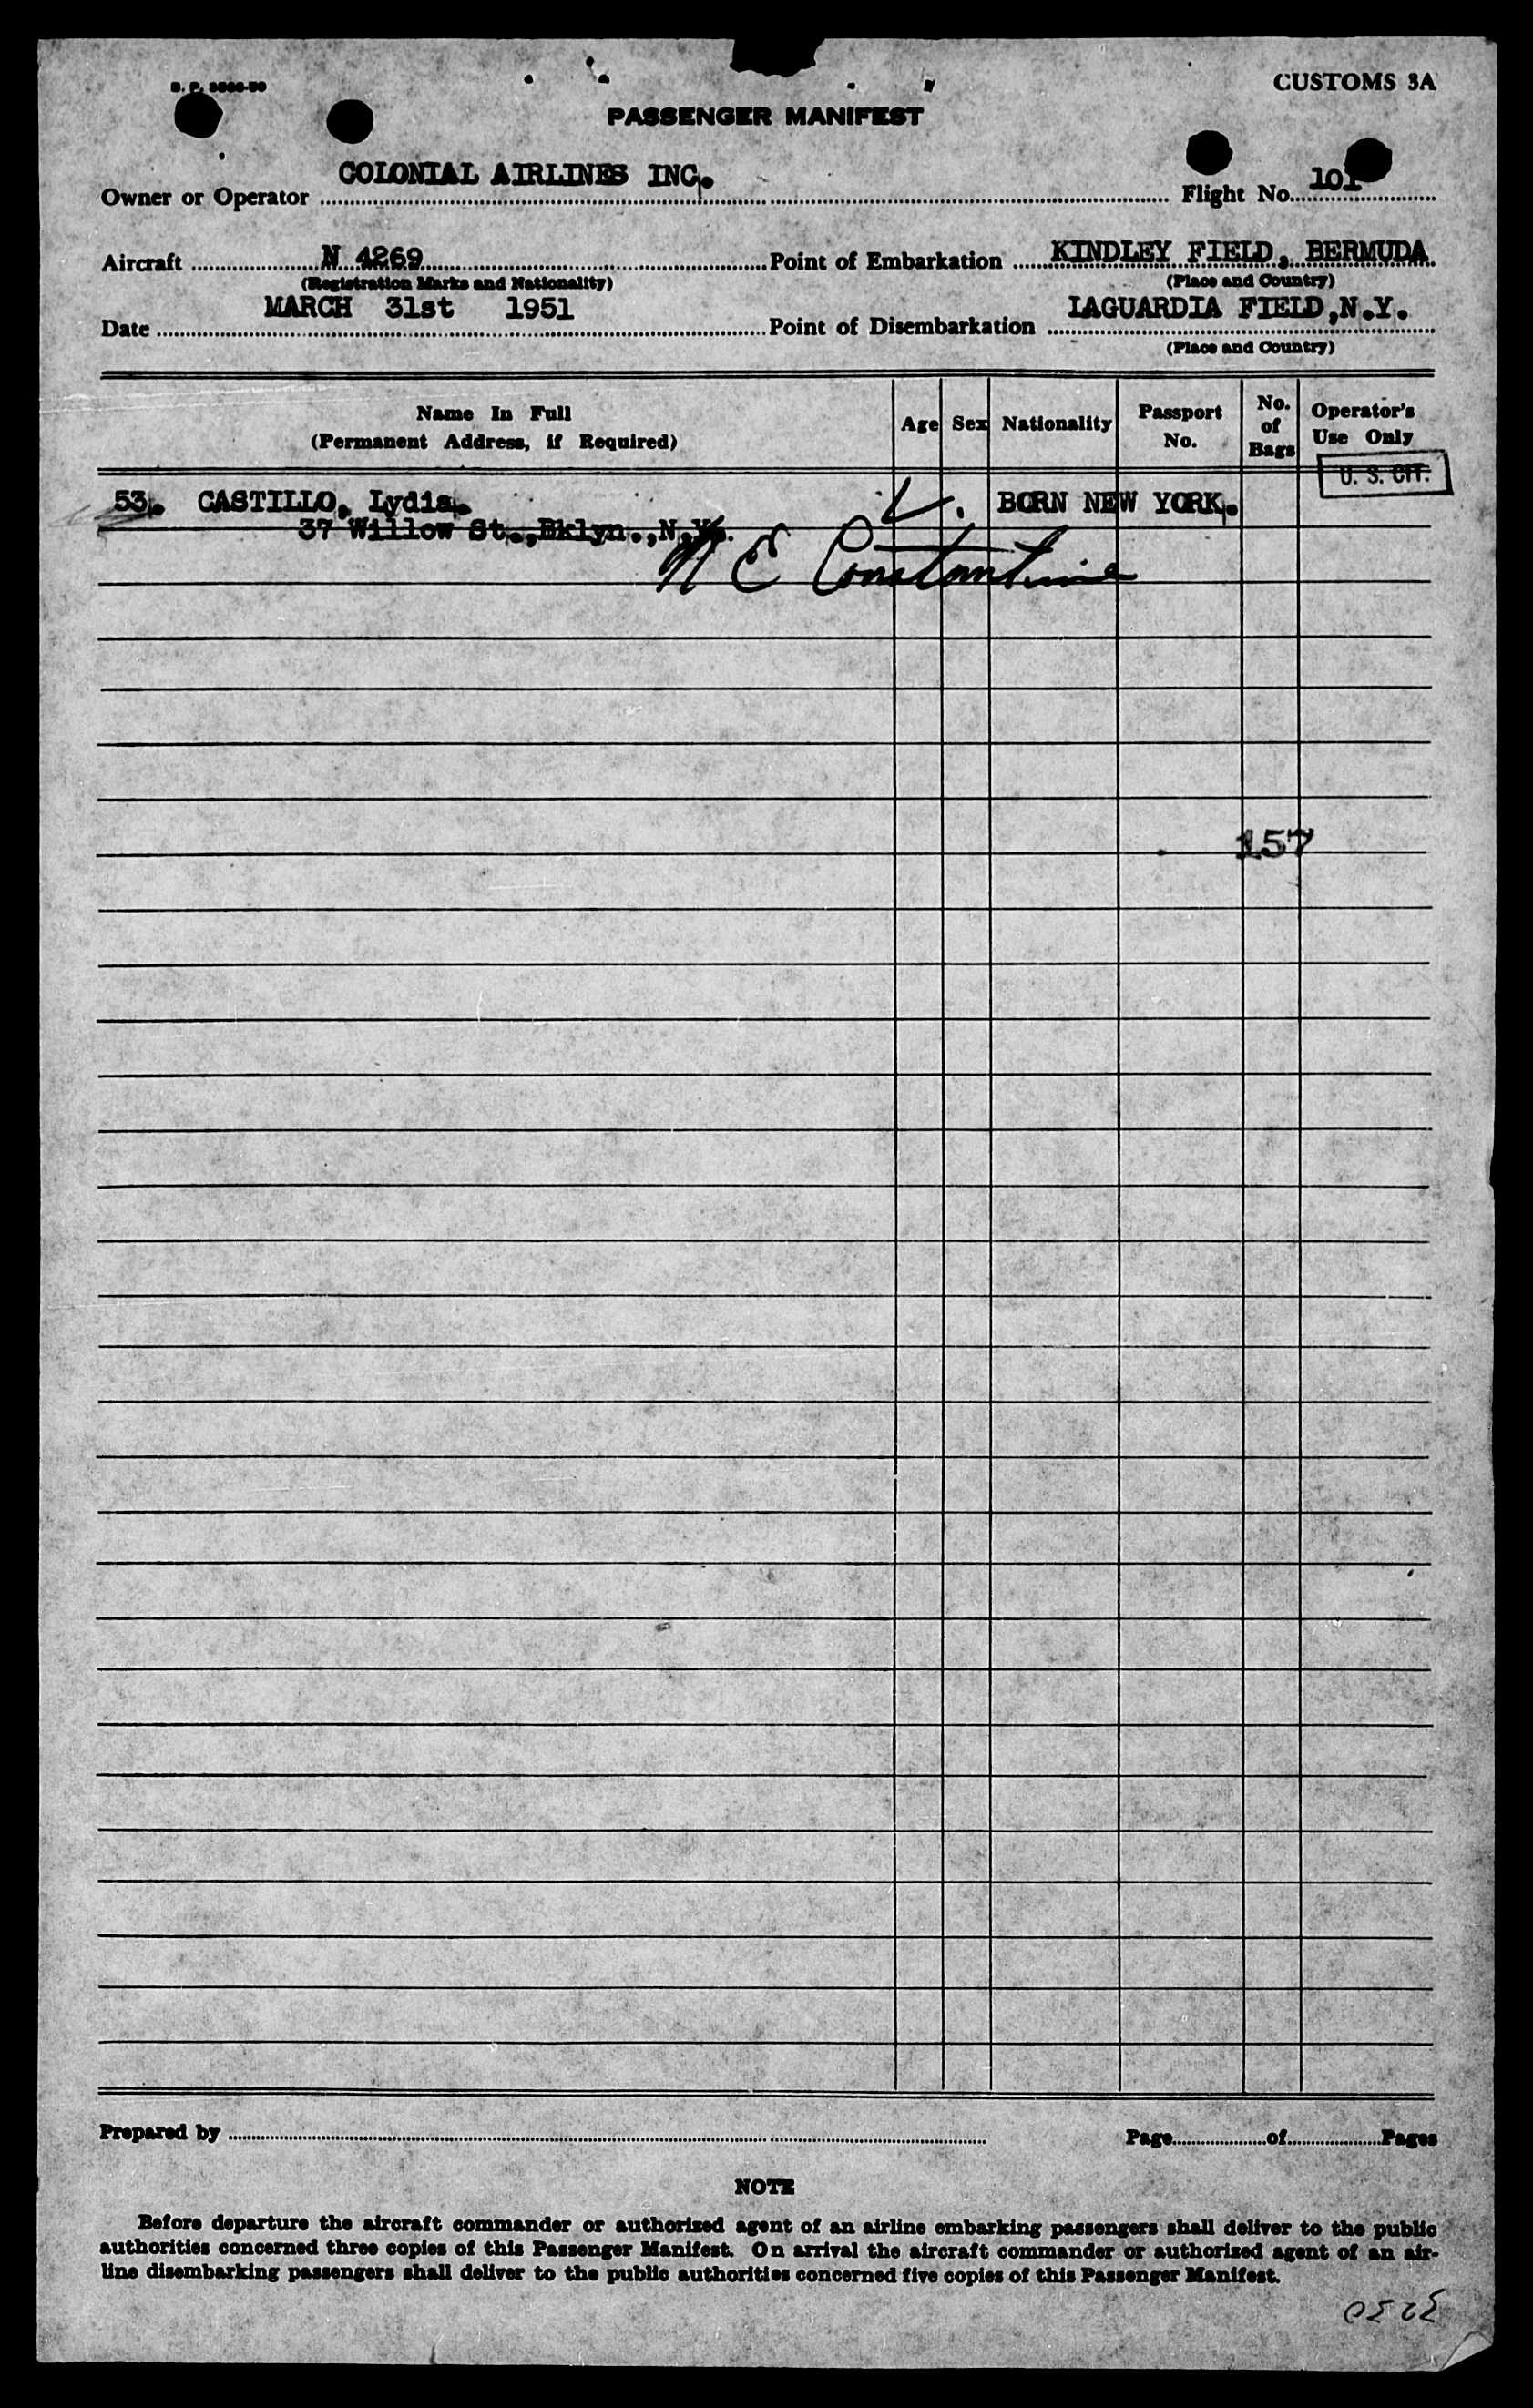 CUSTOMS 3A
PASSENGER MANIFEST
Owner or Operator COLONIAL AIRLINES INC. Flight No. 101
Aircraft N 4269 Point of Embarkation KINDLEY FIELD, BERMUDA
(Registration Marks and Nationality) (Place and Country)
Date MARCH 31st 1951 Point of Disembarkation LAGUARDIA FIELD,N.Y.
(Place and Country)
Name In Full (Permanent Address, if Required) Age Sex Nationality Passport No. No. of Bags Operator's Use Only
U. S. CIT.
53. CASTILLO, Lydia. BORN NEW YORK.
37 Willow St.,Bklyn.,N.Y.
N E Constantine
157
Prepared by Page of Pages
NOTE
Before departure the aircraft commander or authorized agent of an airline embarking passengers shall deliver to the public
authorities concerned three copies of this Passenger Manifest. On arrival the aircraft commander or authorized agent of an air-
line disembarking passengers shall deliver to the public authorities concerned five copies of this Passenger Manifest.